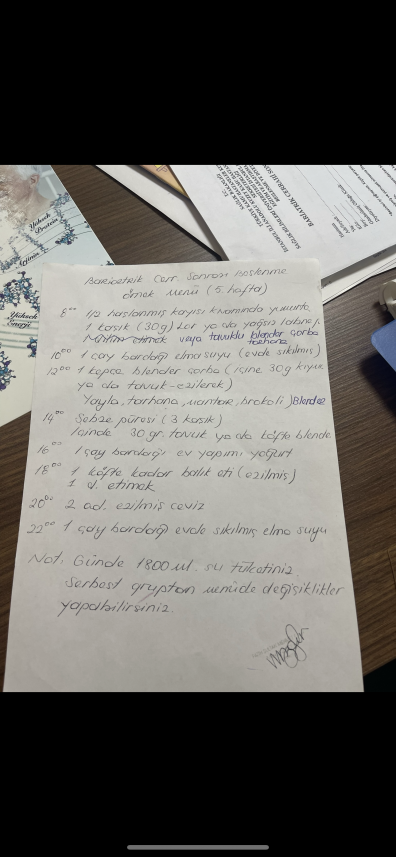 Yüksek
Protein
Yüksek
Enerji
BARİATRİK CERRAHİ
Bariatrik Cerr. Sonrası Beslenme
örnek menü (5. hafta)
8⁰⁰ 1/2 haşlanmış kayısı kıvamında yumurta
1 kaşık (30g) Lor ya da yağsız labne
veya tavuklu blender çorba
tarhana
10⁰⁰ 1 çay bardağı elma suyu (evde sıkılmış)
12⁰⁰ 1 kepçe blender çorba (içine 30g kıyma
ya da tavuk-ezilerek)
Yayla, tarhana, mantar, brokoli) Blender
14⁰⁰ Sebze püresi (3 kaşık)
İçinde 30 gr. tavuk ya da köfte blende
16⁰⁰ 1 çay bardağı ev yapımı yoğurt
18⁰⁰ 1 köfte kadar balık eti (ezilmiş)
1 d. etimek
20⁰⁰ 2 ad. ezilmiş ceviz
22⁰⁰ 1 çay bardağı evde sıkılmış elma suyu
Not: Günde 1800 ml. su tüketiniz.
Serbest gruptan menüde değişiklikler
yapabilirsiniz.